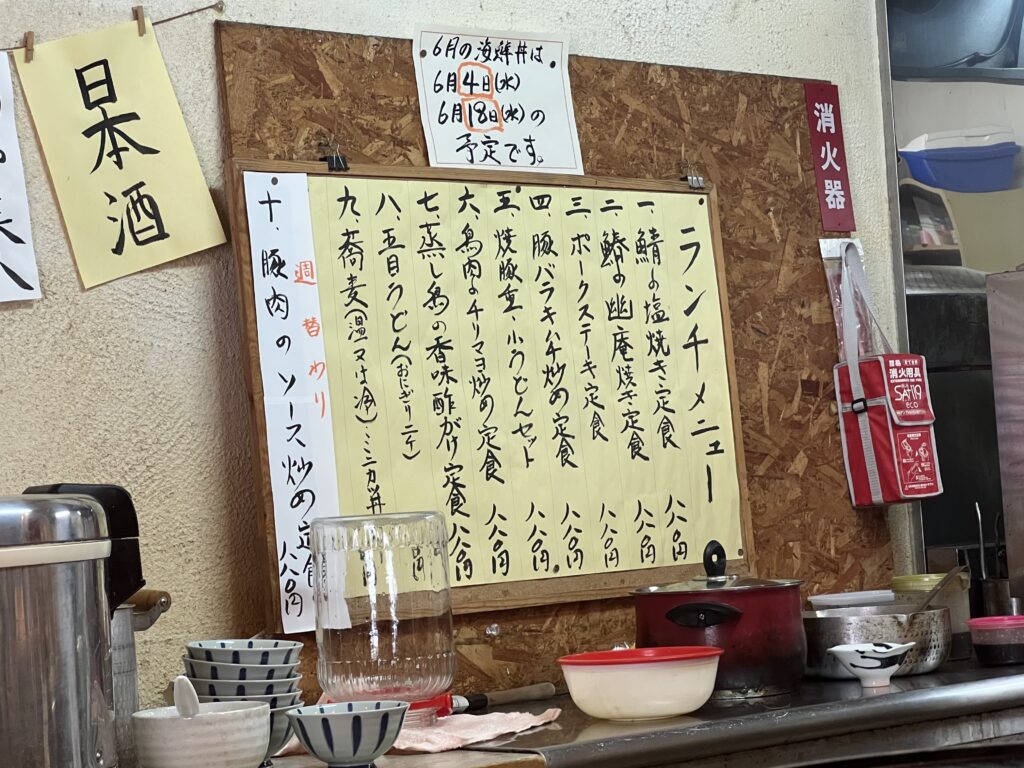 日本酒
6月の海鮮丼は
6月4日(水)
6月18日(水)の
予定です。
消火器
ランチメニュー
一、鯖の塩焼き定食 八八〇円
二、鰆の幽庵焼き定食 八八〇円
三、ポークステキ定食 八八〇円
四、豚バラキムチ炒め定食 八八〇円
五、焼豚重 小うどんセット 八八〇円
六、鳥肉のチリマヨ炒め定食 八八〇円
七、蒸し鳥の香味酢がけ定食 八八〇円
八、五目うどん(おにぎり二ケ) 円
九、蕎麦(温又は冷)ミニカツ丼 円
週替わり
十、豚肉のソース炒め定食 八八〇円
消火用具
SAT119
eco